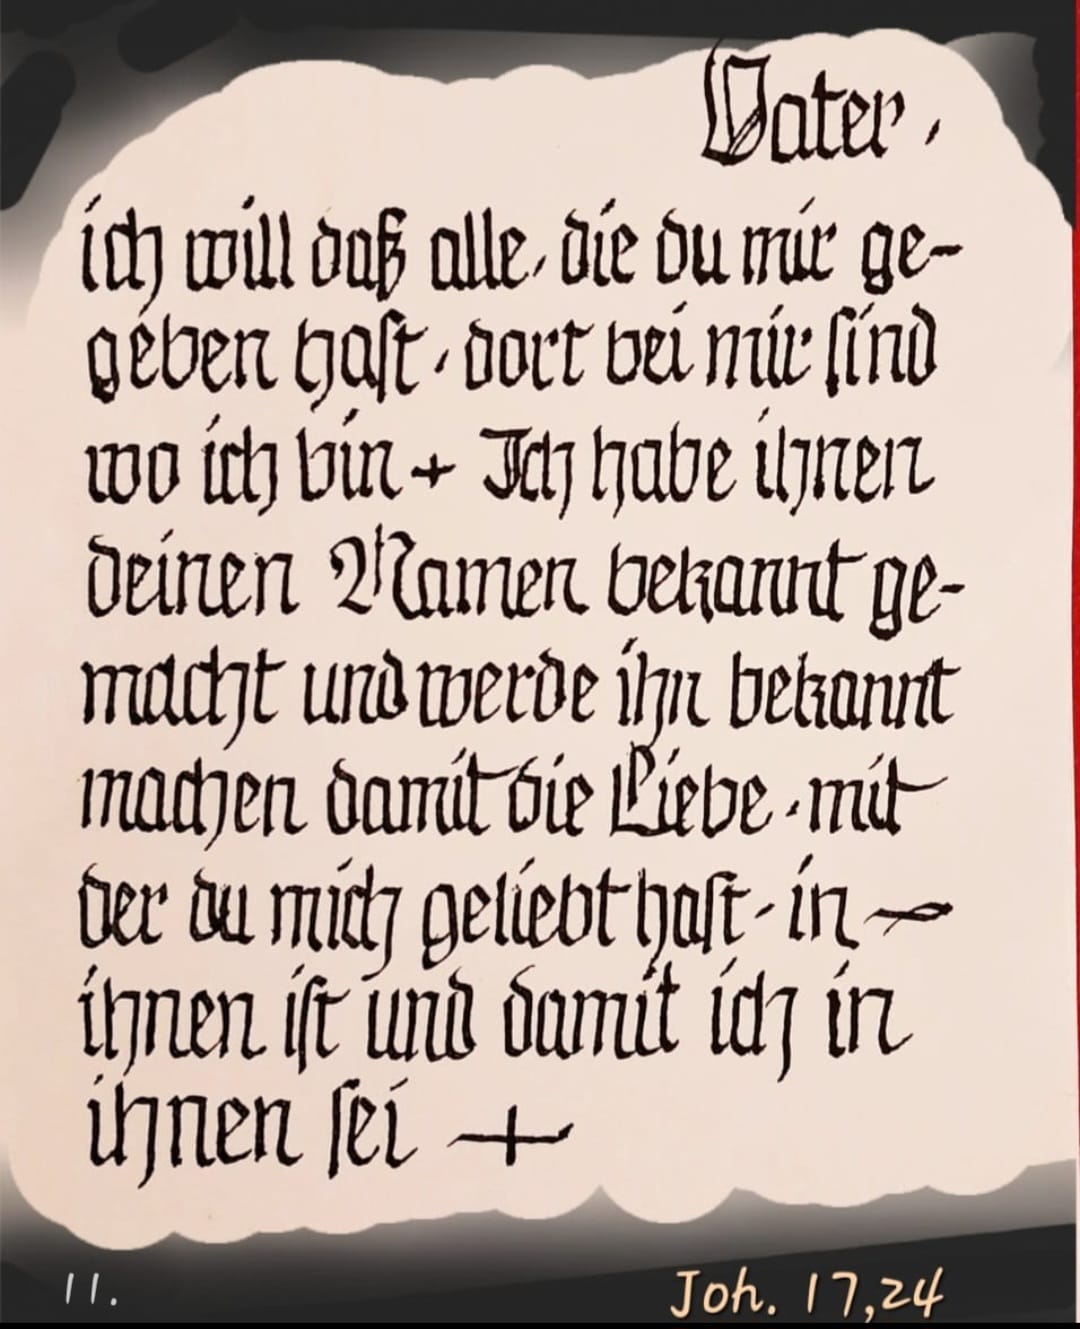 Vater,
ich will daß alle, die du mir ge-
geben haſt, dort bei mir ſind
wo ich bin + Ich habe ihnen
deinen Namen bekannt ge-
macht und werde ihn bekannt
machen damit die Liebe, mit
der du mich geliebt haſt - in
ihnen iſt und damit ich in
ihnen ſei +
11.
Joh. 17,24